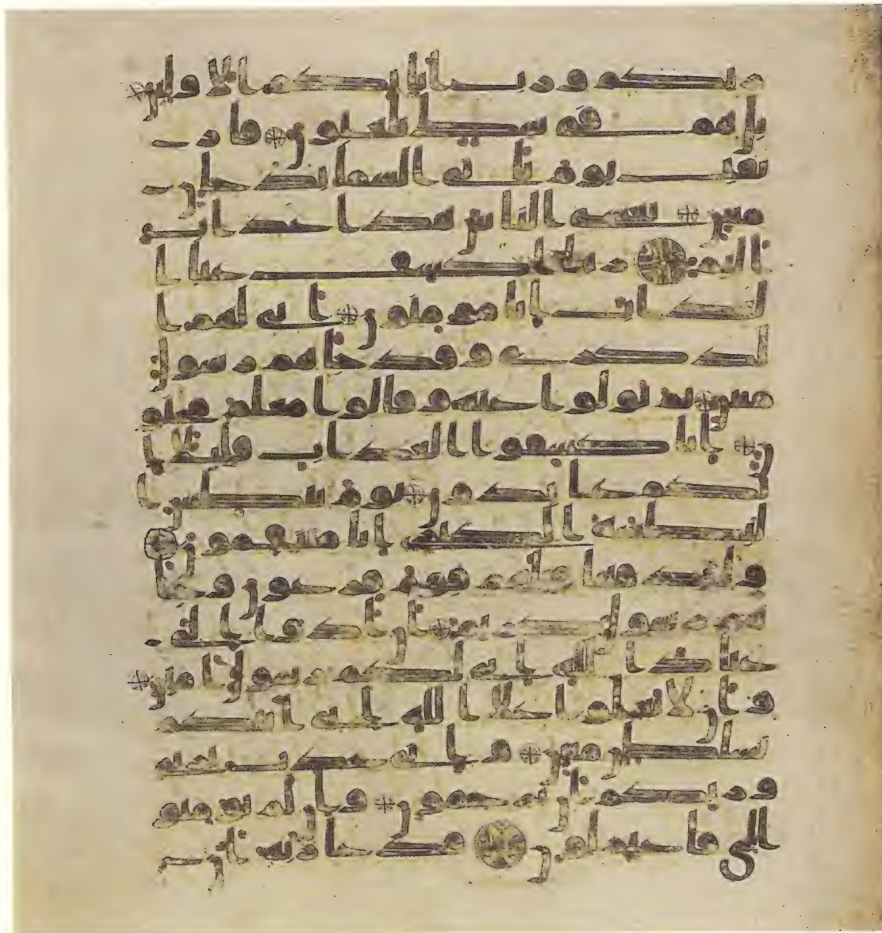 ربكم ورب ابايكم الاولين
بل هم في شك يلعبون فار
تقب يوم تاتي السما بدخان
مبين يغشى الناس هذا عذاب
اليم ربنا اكشف عنا ا
لعذاب انا مومنون انى لهم ا
لذكرى وقد جاهم رسول
مبين ثم تولوا عنه وقالوا معلم مجنو
ن انا كاشفوا العذاب قليلا ا
نكم عايدون يوم نبطش ا
لبطشة الكبرى انا منتقمون
ولقد فتنا قبلهم قوم فرعون وجا
هم رسول كريم ان ادوا الى
عباد الله اني لكم رسول امين
وان لا تعلوا على الله اني اتيكم
بسلطن مبين واني عذت بربي
وربكم ان ترجمون وان لم تومنوا
لي فاعتزلون فدعا ربه ان